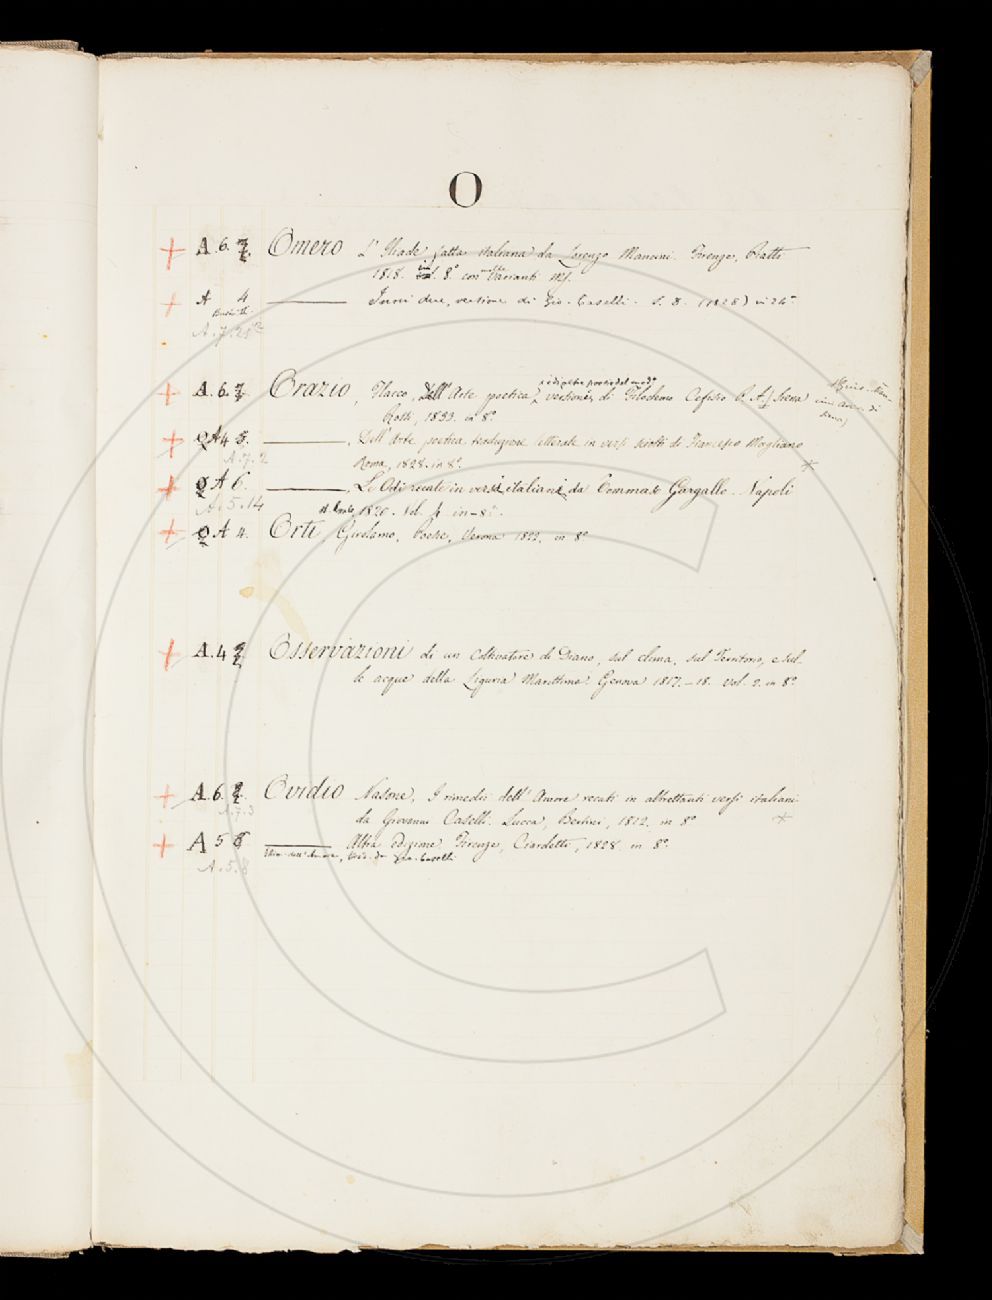 O
A. 6. 7 Omero L'Iliade fatta italiana da Lorenzo Mancini. Firenze, Piatti
1818. 8.° con molte Varianti Mſ.
A 4 ——— Inni due, versione di Gio. Caselli. S. D. (1828) in 24°
A. 7. 25
A. 6. 7 Orazio Flacco, Dell'Arte poetica, versione di Filodemo Cefisio P. A.
e di altre poesie del med.°
Rossi, 1833. in 8.°
A 4 8. ———, Dell'Arte poetica traduzione litterale in versi sciolti di Francesco Mogliano
A. 7. 2
Roma, 1828. in 8.°
A 6. ———, Le Odi recate in versi italiani da Tommaso Gargallo. Napoli
A. 5. 14
1820. Vol. 4 in-8.°
A 4. Orti, Girolamo, Poesie, Verona 1822. in 8.°
A. 4 Osservazioni di un Coltivatore di Diano, sul clima, sul Territorio, e sul-
le acque della Liguria Marittima. Genova 1817.–18. Vol. 2. in 8.°
A. 6. Ovidio Nasone, I rimedii dell'Amore recati in altrettanti versi italiani
A. 7. 3
da Giovanni Caselli. Lucca, Bertini, 1822. in 8.°
A 5 8 ——— Altra edizione Firenze, Ciardetti, 1828. in 8.°
dell'Amore, trad. da Gio. Caselli
A. 5. 8
C